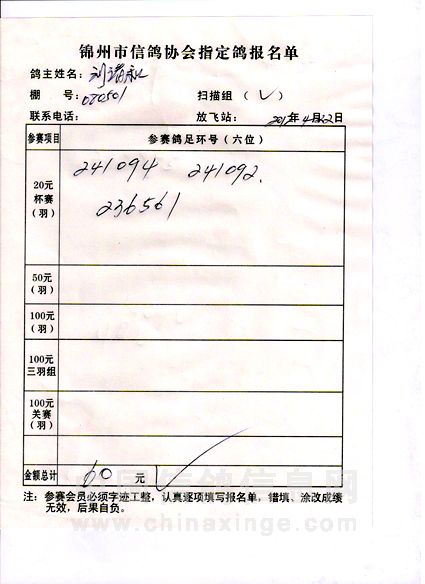 锦州市信鸽协会指定鸽报名单
鸽主姓名：刘
棚 号：080501 扫描组（✓）
联系电话： 放飞站： 2012年4月22日
参赛项目 参赛鸽足环号（六位）
20元杯赛（羽） 241094 241092.
236561
50元（羽）
100元（羽）
100元三羽组
100元关赛（羽）
金额总计 60 元
注：参赛会员必须字迹工整，认真逐项填写报名单，错填、涂改成绩
无效，后果自负。
中国信鸽信息网
www.chinaxinge.com